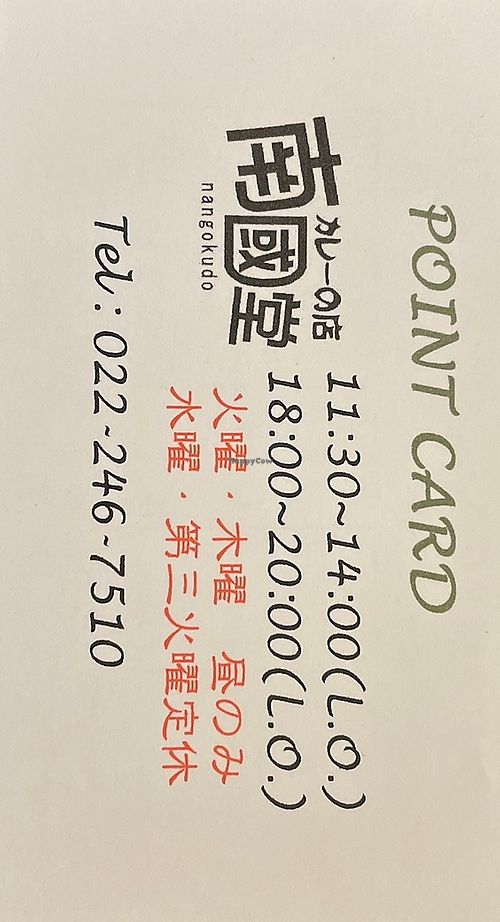 POINT CARD
カレーの店
南國堂
nangokudo
11:30~14:00(L.O.)
18:00~20:00(L.O.)
火曜・木曜　昼のみ
水曜・第三火曜定休
Tel:022-246-7510
HappyCow